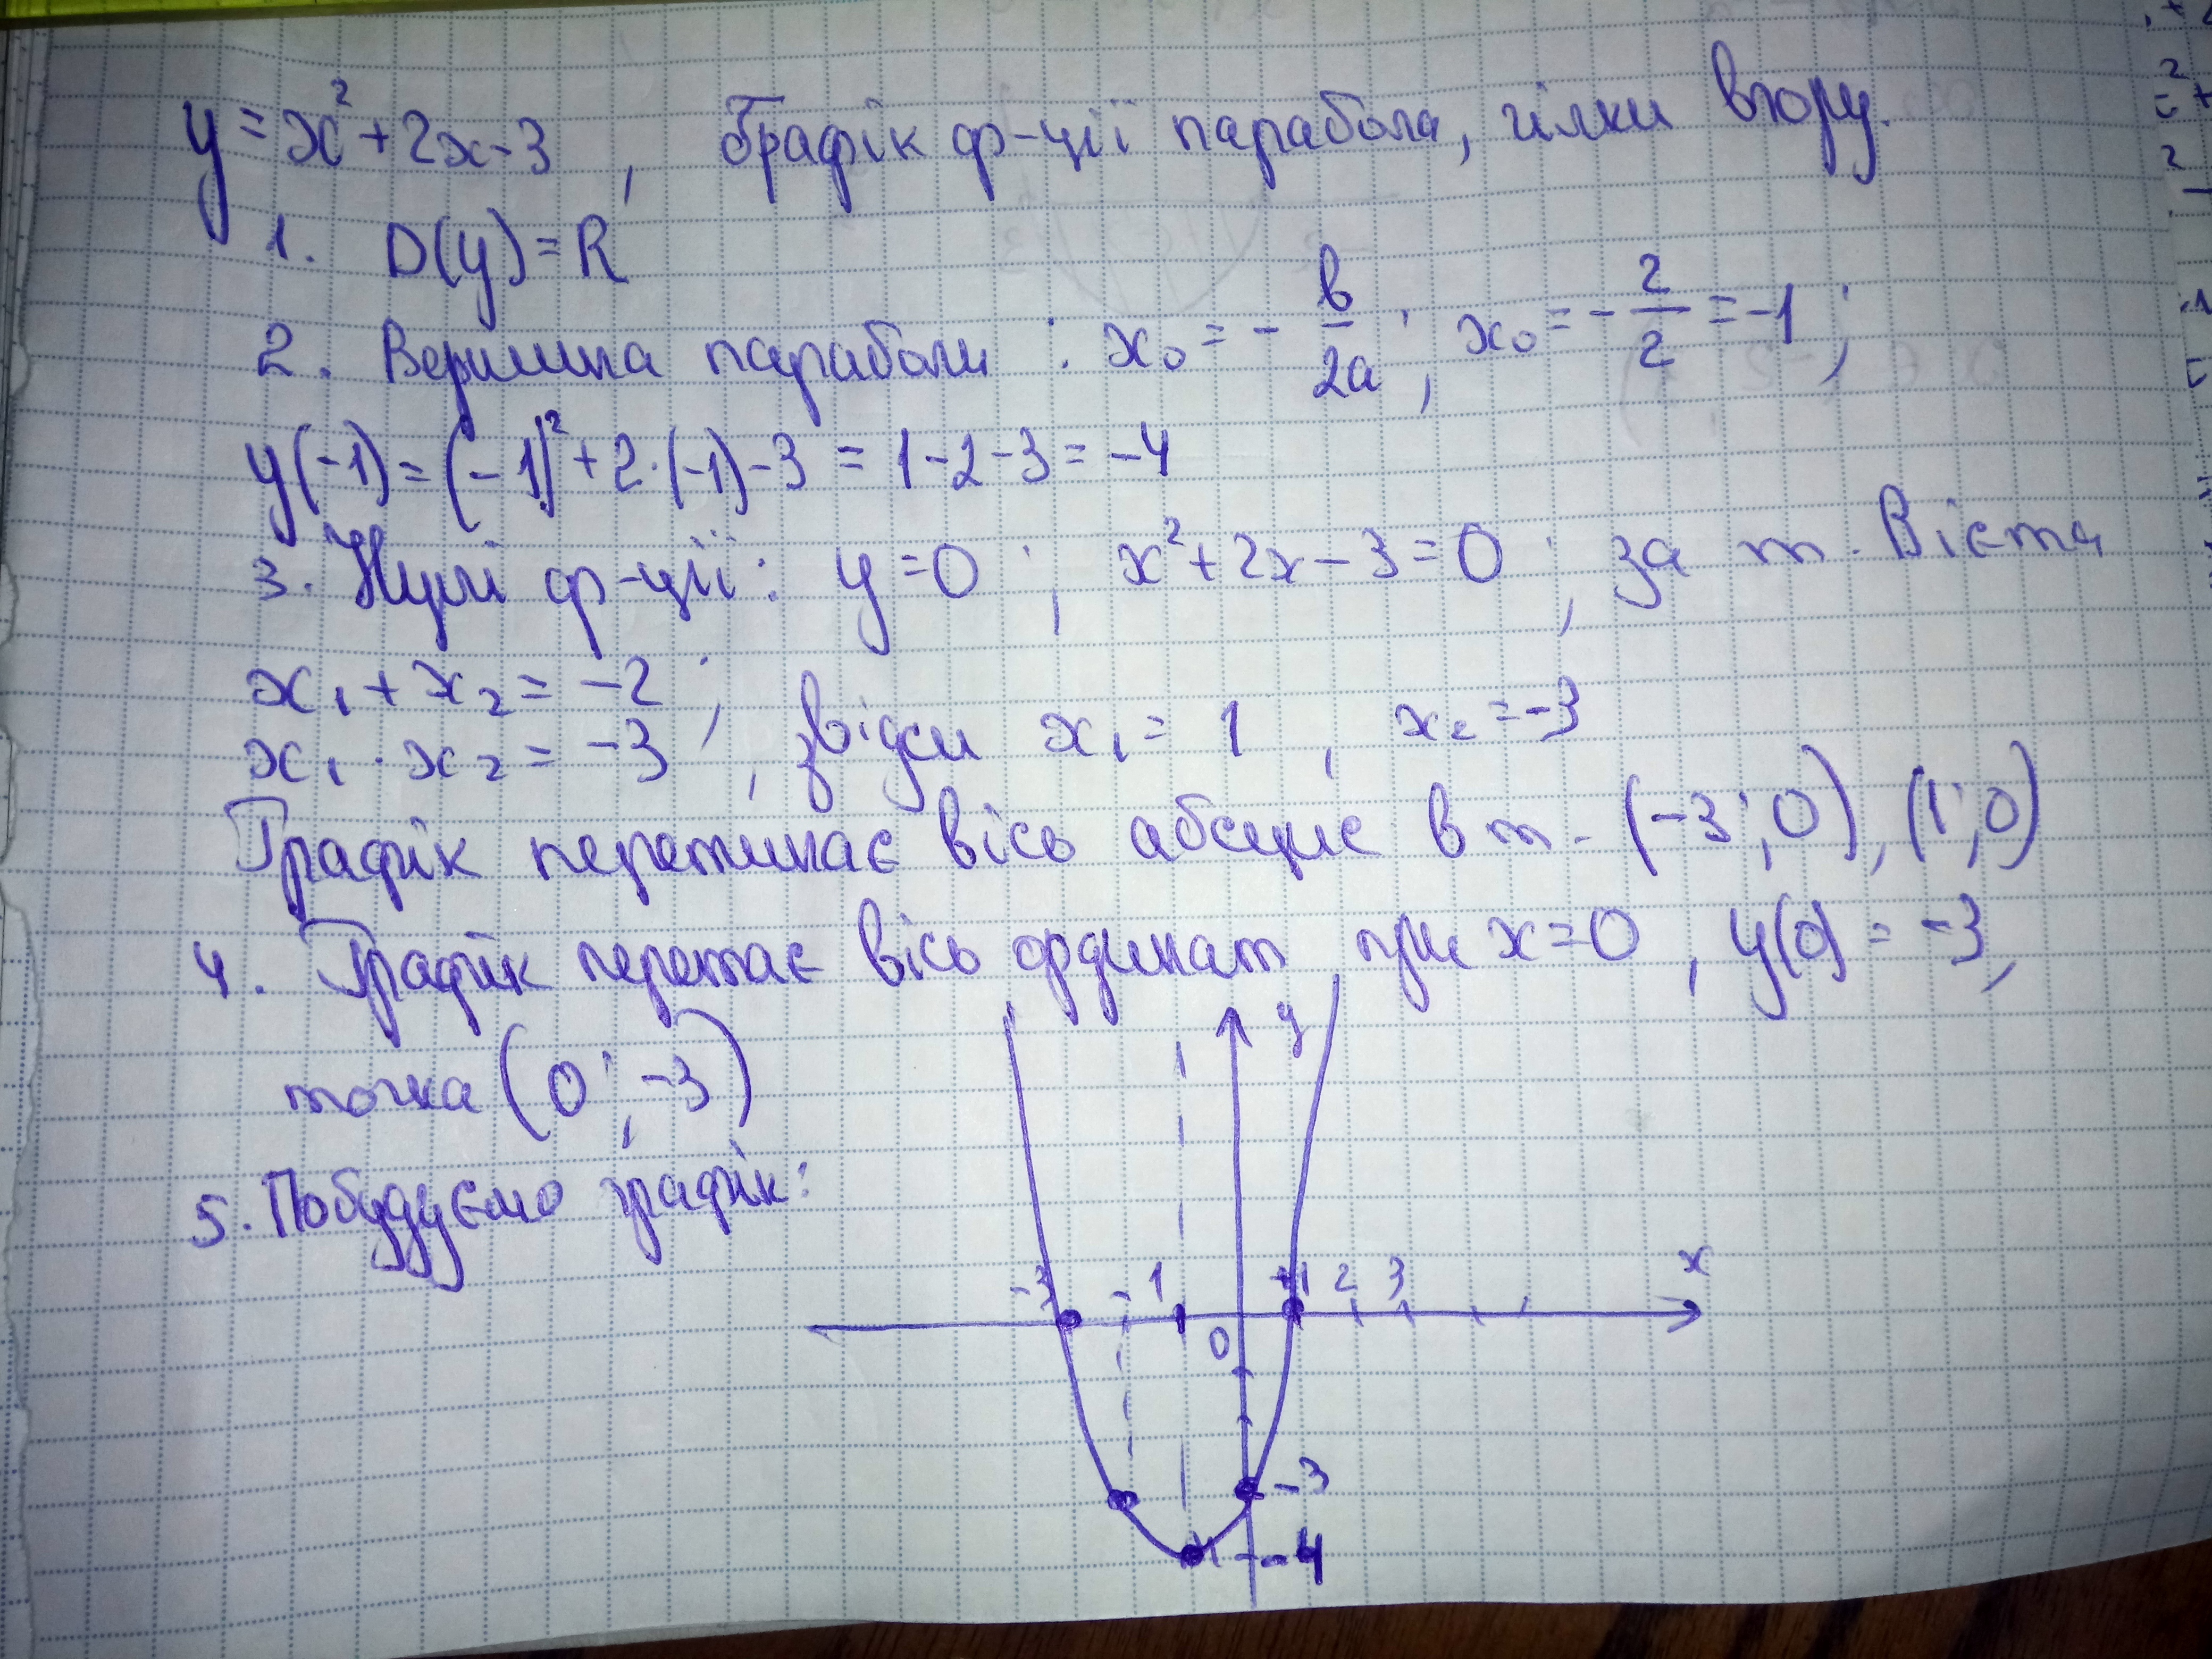 y = x² + 2x - 3 , Графік ф-ції парабола, гілки вгору.
1. D(y) = R
2. Вершина параболи : x₀ = - b/2a ; x₀ = - 2/2 = -1 ;
y(-1) = (-1)² + 2·(-1) - 3 = 1 - 2 - 3 = -4
3. Нулі ф-ції : y = 0 ; x² + 2x - 3 = 0 ; за т. Вієта
x₁ + x₂ = -2 ;
x₁ · x₂ = -3 ; звідси x₁ = 1 , x₂ = -3
Графік перетинає вісь абсцис в т. (-3 ; 0), (1 ; 0)
4. Графік перетає вісь ординат при x = 0 , y(0) = -3,
точка (0 ; -3)
5. Побудуємо графік:
y
-3 -1 1 2 3 x
0
-3
-4